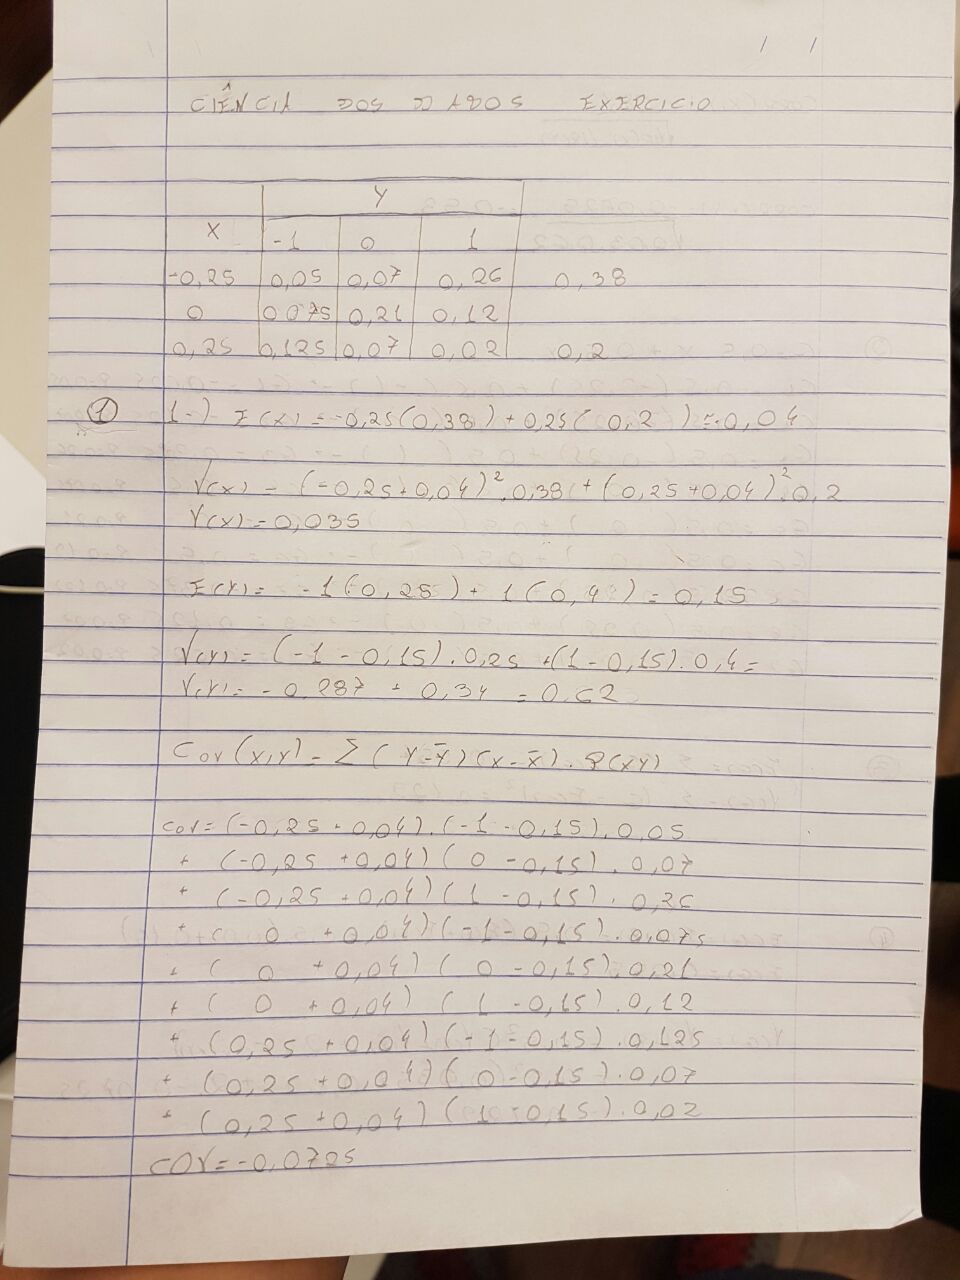 CIÊNCIA DOS DADOS EXERCICIO
Y
X -1 0 1
-0,25 0,05 0,07 0,26 0,38
0 0075 0,21 0,12
0,25 0,125 0,07 0,02 0,2
1 1-) E(X) = -0,25(0,38) + 0,25(0,2) = -0,04
V(X) = (-0,25+0,04)².0,38 + (0,25+0,04)².0,2
V(X) = 0,035
E(Y) = -1(0,25) + 1(0,4) = 0,15
V(Y) = (-1 - 0,15).0,25 + (1 - 0,15).0,4 =
V(Y) = -0,287 + 0,34 = 0,62
Cov(X,Y) = Σ(Y-Ȳ)(X-X̄).P(XY)
COV = (-0,25 + 0,04).(-1 - 0,15).0,05
+ (-0,25 + 0,04)(0 - 0,15).0,07
+ (-0,25 + 0,04)(1 - 0,15).0,26
+ (0 + 0,04)(-1 - 0,15).0,075
+ (0 + 0,04)(0 - 0,15).0,21
+ (0 + 0,04)(1 - 0,15).0,12
+ (0,25 + 0,04)(-1 - 0,15).0,125
+ (0,25 + 0,04)(0 - 0,15).0,07
+ (0,25 + 0,04)(1 - 0,15).0,02
COV = -0,0725